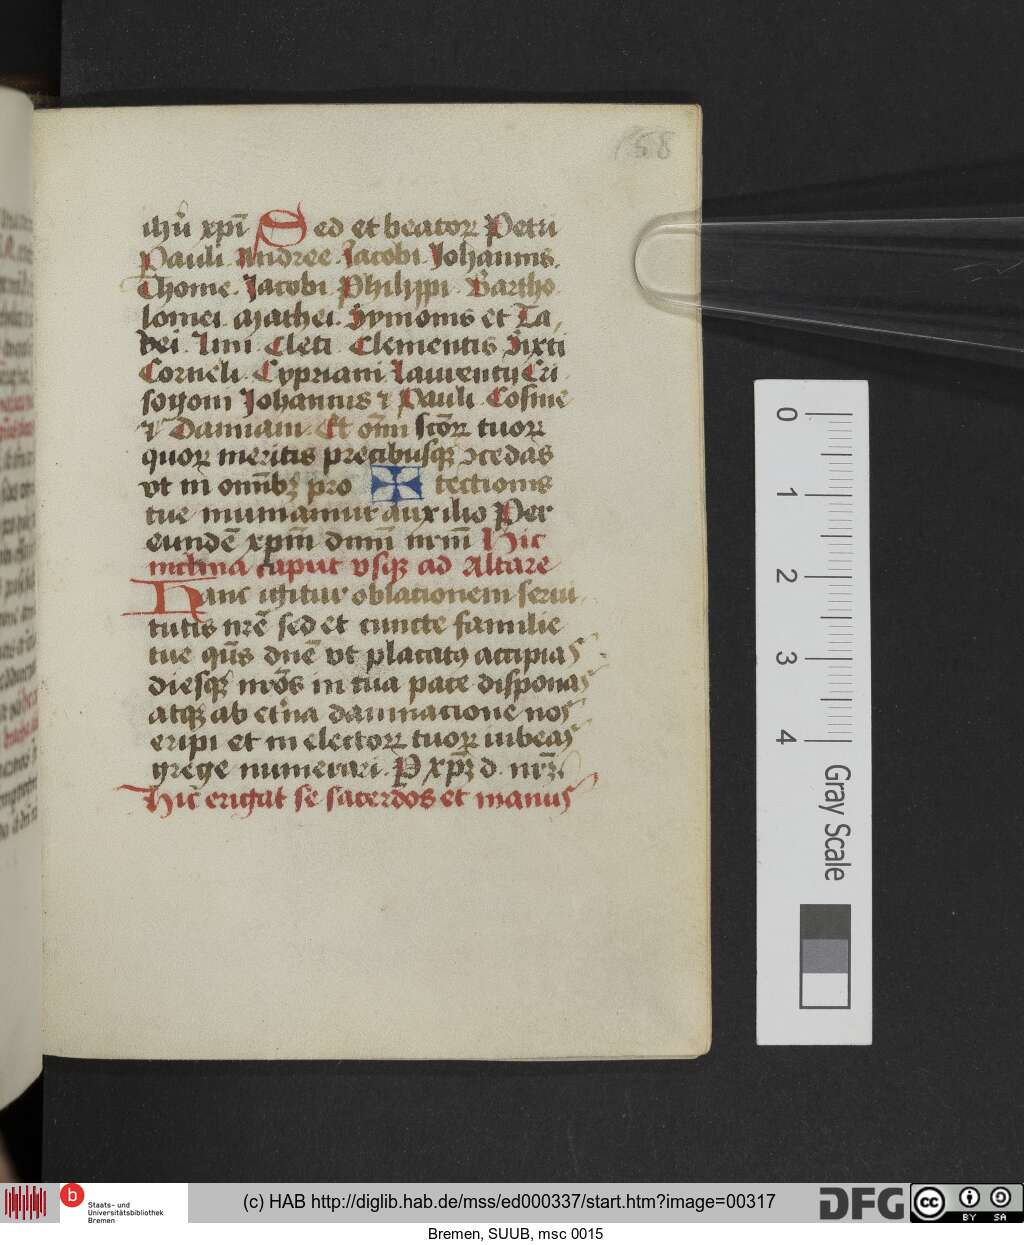 158
ihū xpī Sed et beatoꝝ Petri
Pauli Andree Jacobi Johannis
Thome Jacobi Philippi Bartho
lomei Mathei Symonis et Ta
dei Lini Cleti Clementis Sixti
Corneli Cypriani Laurentij Cri
sogoni Johannis ⁊ Pauli Cosme
⁊ Damiani Et om̄i sc̄oꝝ tuoꝝ
quoꝝ meritis precibusqꝫ ↄcedas
vt in om̄ibꝫ pro tectionis
tue muniamur auxilio Per
eundē xpm̄ dnm̄ nrm̄ Hic
inclina caput vsqꝫ ad Altare
Hanc igitur oblationem serui
tutis nrē sed et cuncte familie
tue qūs dnē vt placatꝰ accipias
diesqꝫ nrōs in tua pace disponas
atqꝫ ab etna damnacione nos
eripi et in electoꝝ tuoꝝ iubeas
grege numerari P xpꝫ d nrꝫ
Hic erigat se sacerdos et manus
0
1
2
3
4
Gray Scale
b
Staats- und
Universitätsbibliothek
Bremen
(c) HAB http://diglib.hab.de/mss/ed000337/start.htm?image=00317
DFG
cc
BY SA
Bremen, SUUB, msc 0015